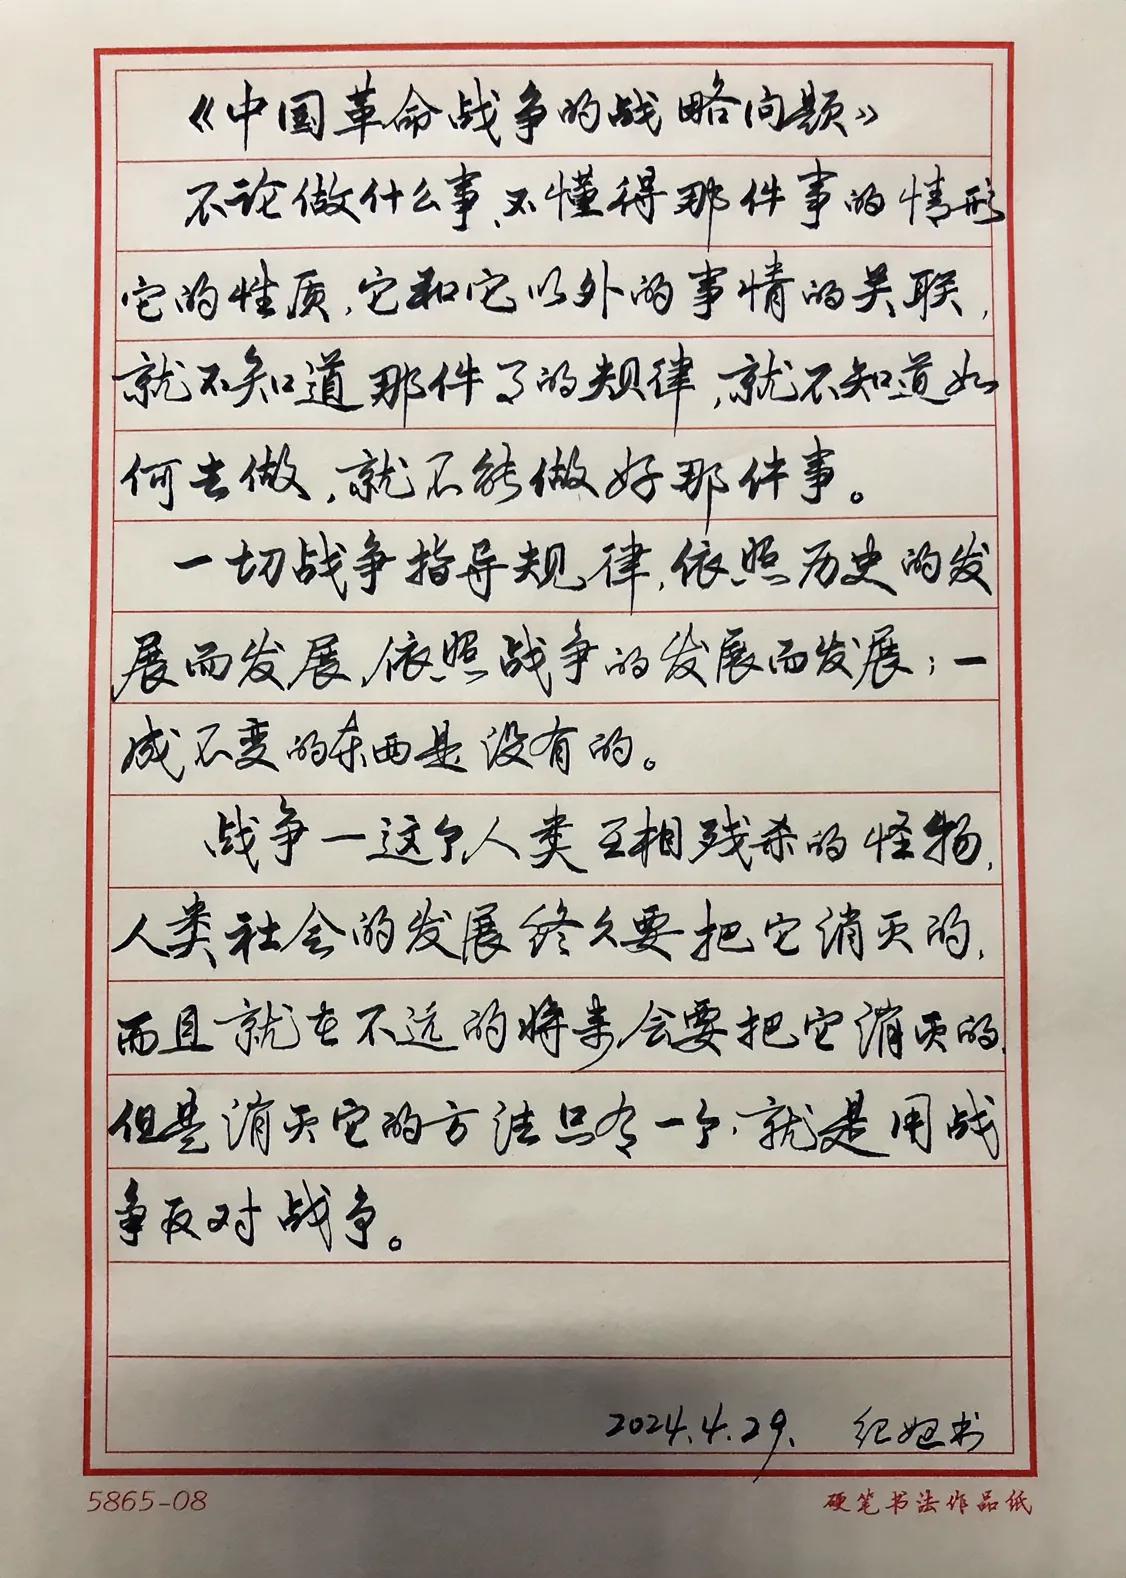 《中国革命战争的战略问题》
不论做什么事、不懂得那件事的情形
它的性质,它和它以外的事情的关联,
就不知道那件了的规律,就不知道如
何去做,就不能做好那件事。
一切战争指导规律,依照历史的发
展而发展,依照战争的发展而发展;一
成不变的东西是没有的。
战争一这个人类互相残杀的怪物,
人类社会的发展终久要把它消灭的,
而且就在不远的将来会要把它消灭的,
但是消灭它的方法只有一个,就是用战
争反对战争。
2024.4.29. 纪
书
5865-08
硬笔书法作品纸